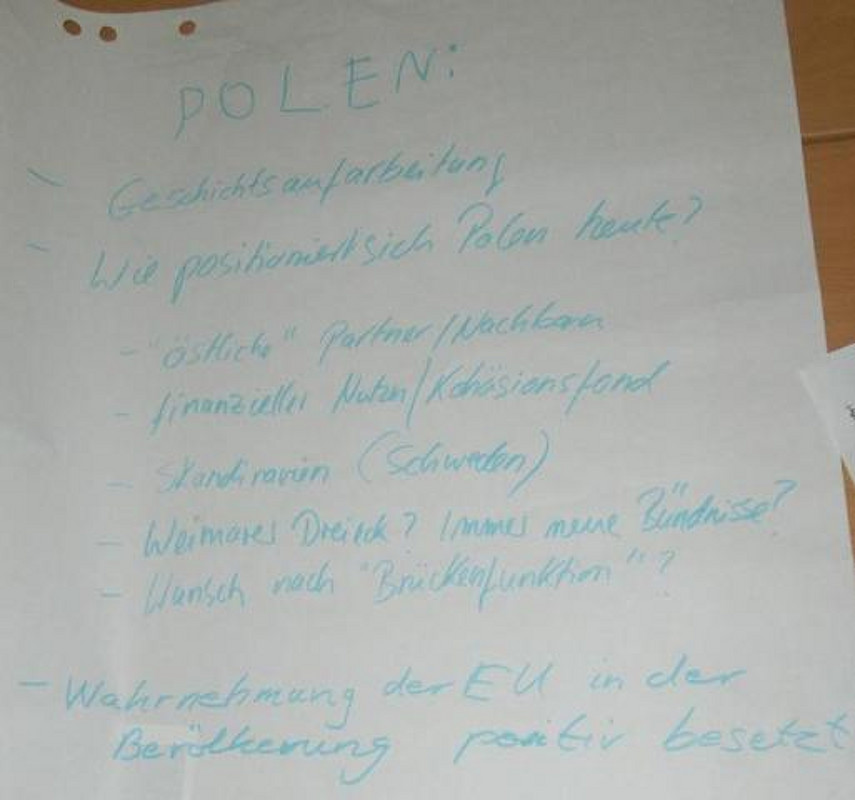 POLEN:
- Geschichtsaufarbeitung
- Wie positioniert sich Polen heute?
- "östliche" Partner/Nachbarn
- finanzieller Nutzen/Kohäsionsfond
- Skandinavien (Schweden)
- Weimarer Dreieck? Immer neue Bündnisse?
- Wunsch nach "Brückenfunktion"?
- Wahrnehmung der EU in der
Bevölkerung positiv besetzt